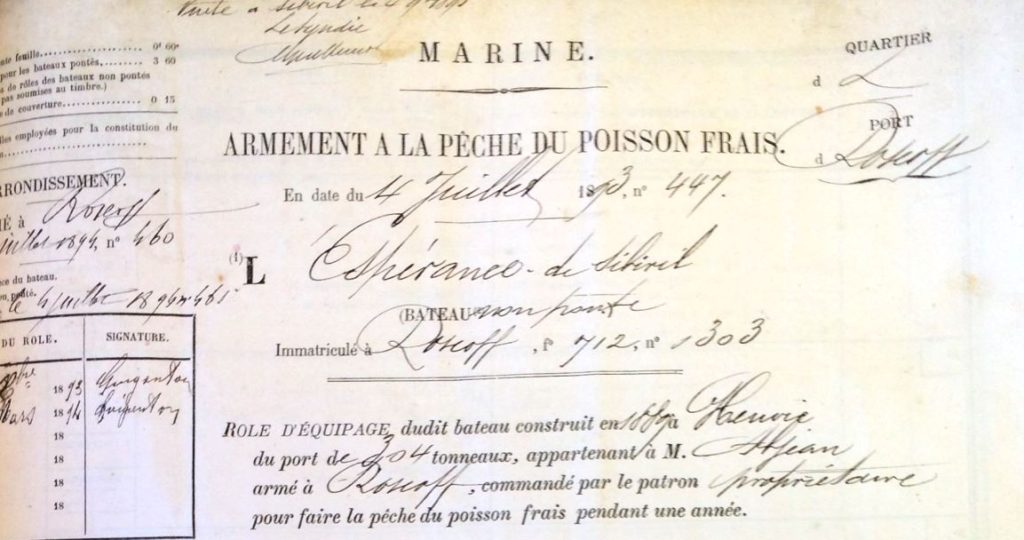 Visite à Sibiril le
Le Syndic
MARINE.
QUARTIER
d L
PORT
d Roscoff
ARMEMENT A LA PÊCHE DU POISSON FRAIS.
En date du 4 Juillet 1893, n° 447.
(1) L'Espérance - de Sibiril
(BATEAU non ponté
Immatriculé à Roscoff, f° 712, n° 1303
ROLE D'ÉQUIPAGE, dudit bateau construit en 1889 à Henvic
du port de 3 04 tonneaux, appartenant à M.
armé à Roscoff, commandé par le patron propriétaire
pour faire la pêche du poisson frais pendant une année.
feuille 0f 60c
pour les bateaux pontés, 3 60
de rôles des bateaux non pontés
pas soumises au timbre.)
de couverture 0 15
employées pour la constitution du
RRONDISSEMENT.
É à Roscoff
juillet 1894, n° 460
du bateau.
ponté.
le 4 juillet 1894 n° 461
DU ROLE. SIGNATURE.
bre 1893 Guiganton
Mars 1894 Guiganton
18
18
18
18